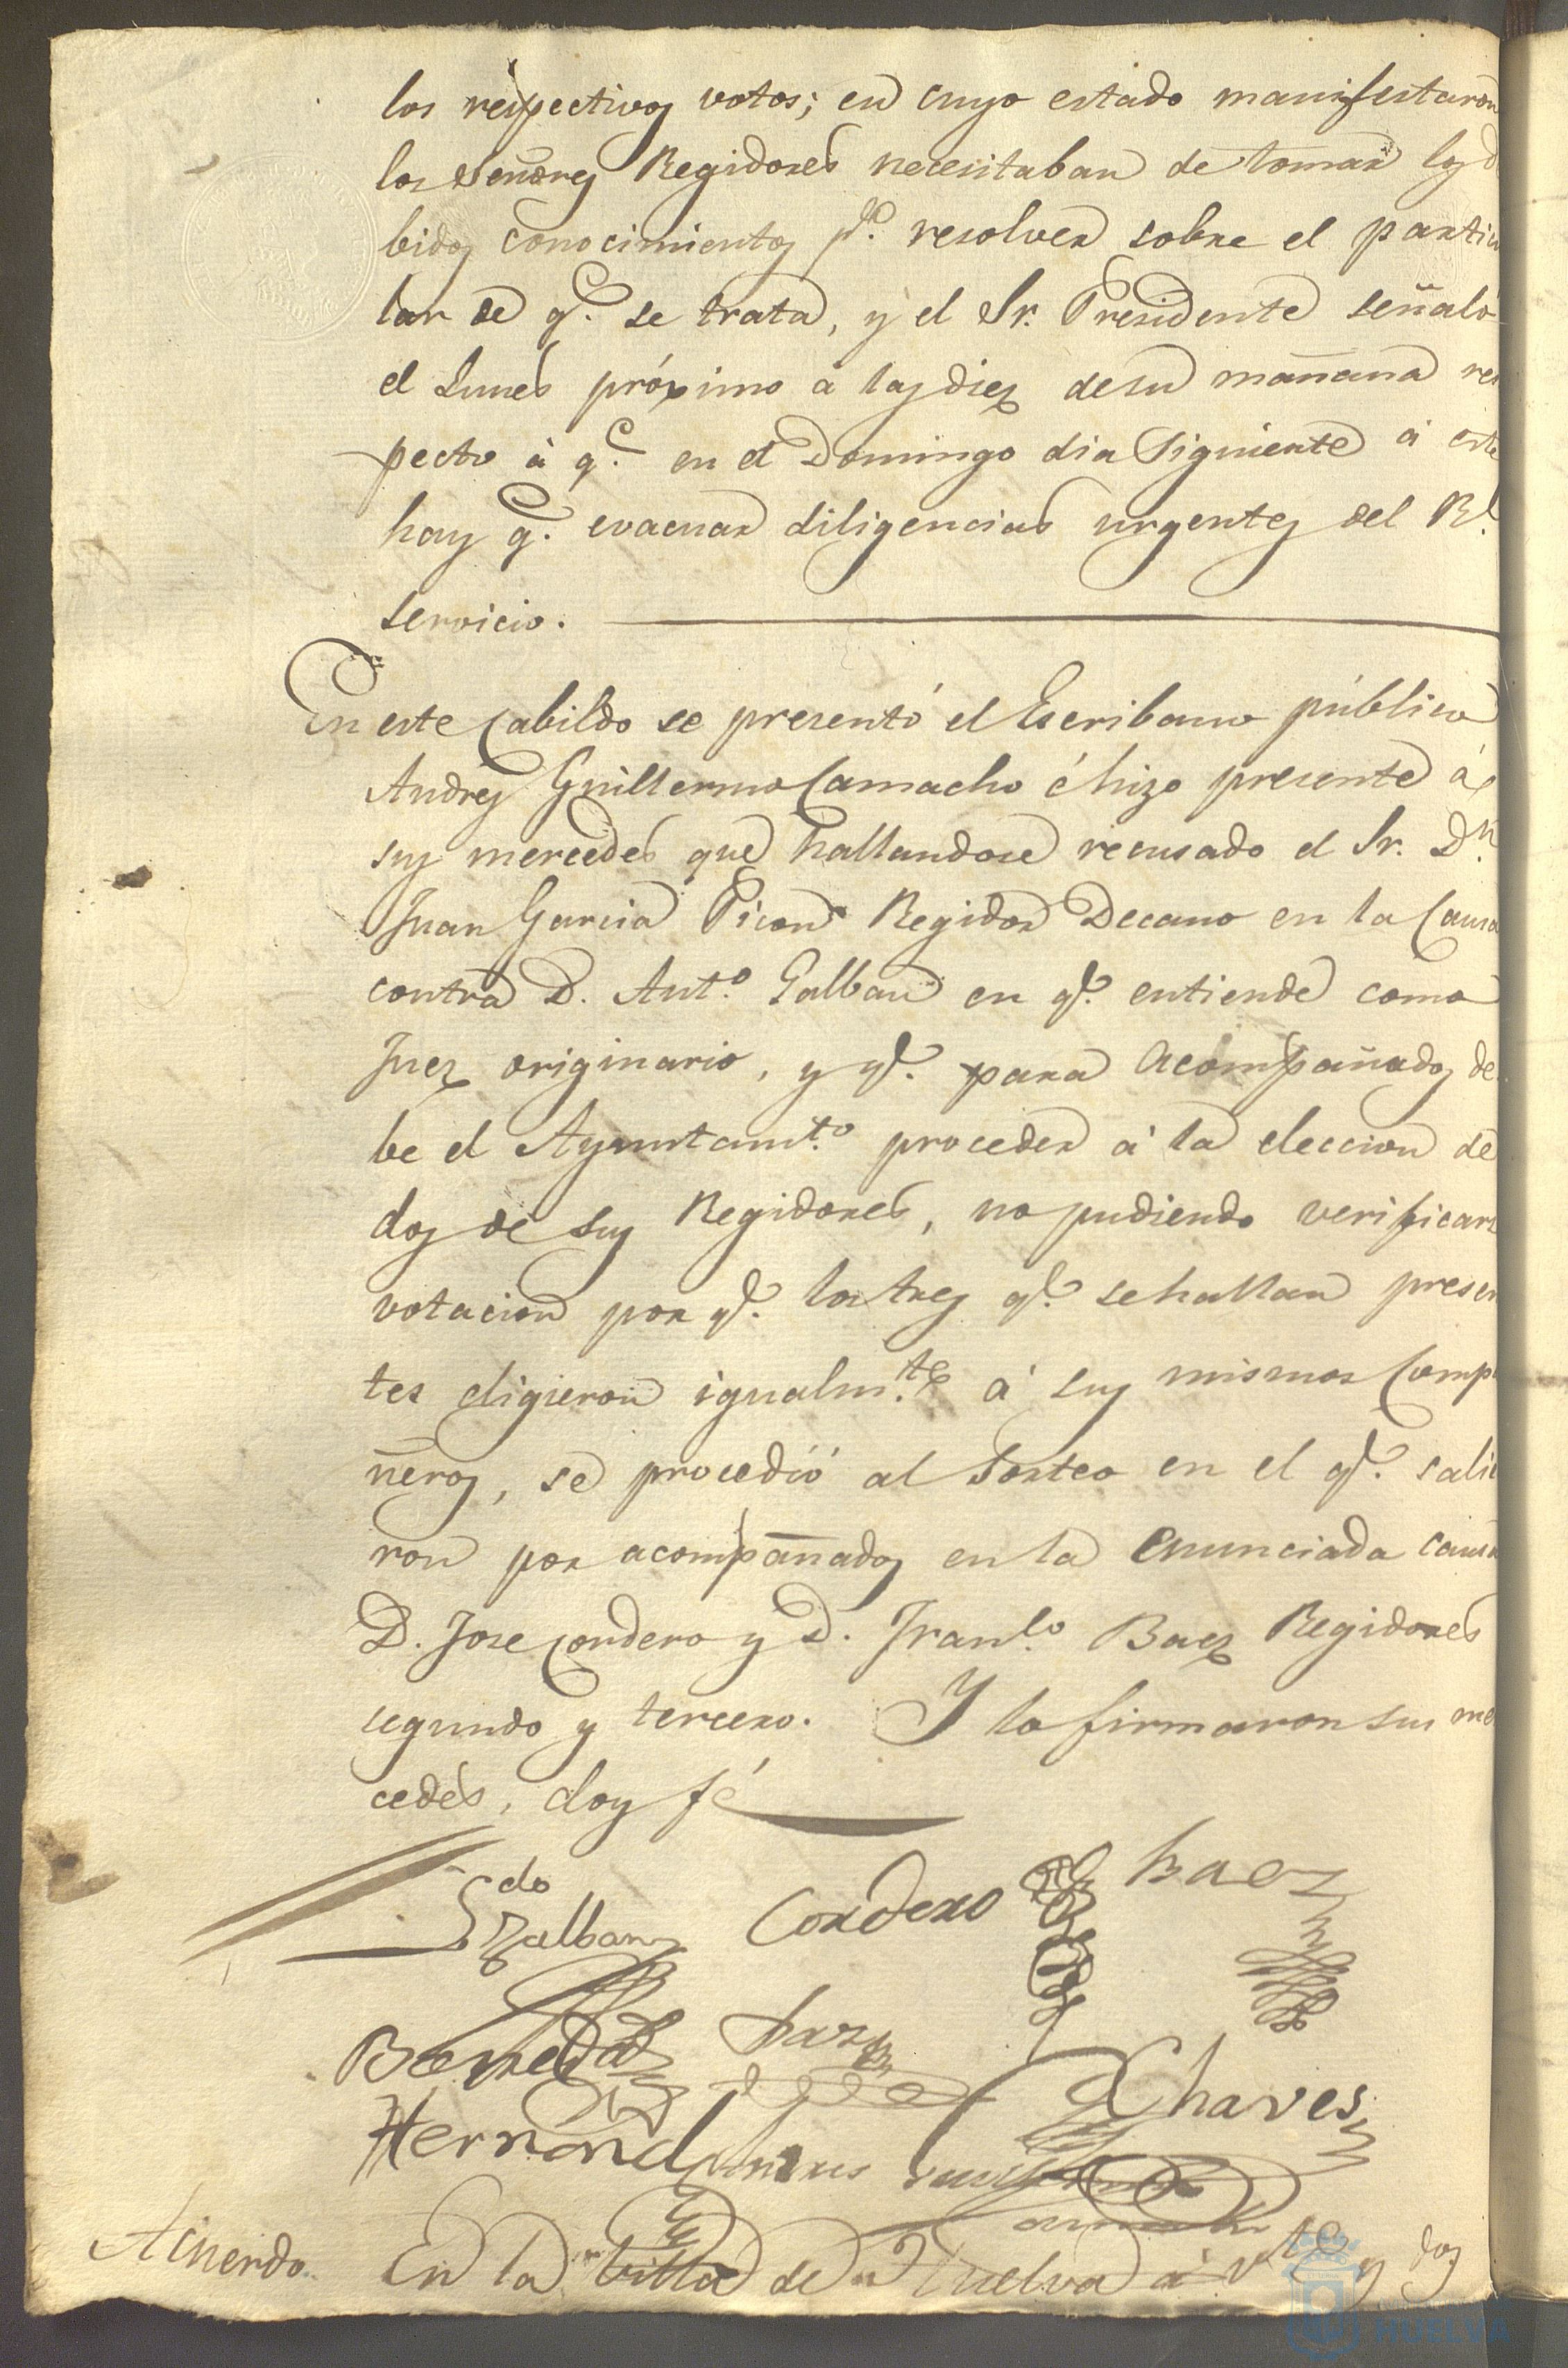 los respectivos votos; en cuyo estado manifestaron
los Señores Regidores necesitaban de tomar los d
bidos conocimientos pª. resolver sobre el particu
lar de qᵉ. se trata, y el Sr. Presidente señaló
el Lunes próximo a las diez de su mañana res
pecto á qᵉ. en el Domingo dia siguiente á este
hay qᵉ. evacuar diligencias urgentes del Rˡ.
servicio.
En este Cabildo se presentó el Escribano público
Andres Guillermo Camacho é hizo presente á
sus mercedes que hallandose recusado el Sr. Dⁿ.
Juan Garcia Picon Regidor Decano en la Causa
contra D. Antº. Galban en qᵉ. entiende como
Juez originario, y qᵉ. para acompañados de
be el Ayuntamtº. proceder á la eleccion de
dos de sus Regidores, no pudiendo verificars
votacion por qᵉ. los tres qᵉ. se hallan presen
tes eligieron igualmᵗᵉ. á sus mismos Compa
ñeros, se procedió al Sorteo en el qᵉ. salie
ron por acompañados en la enunciada causa
D. Jose Cordero y D. Franᶜº. Baez Regidores
segundo y tercero. Y lo firmaron sus me
cedes, doy fé
Galban Cordero Baez
Chaves
Hernand
Acuerdo. En la Villa de Huelva á vᵗᵉ y dos
HUELVA